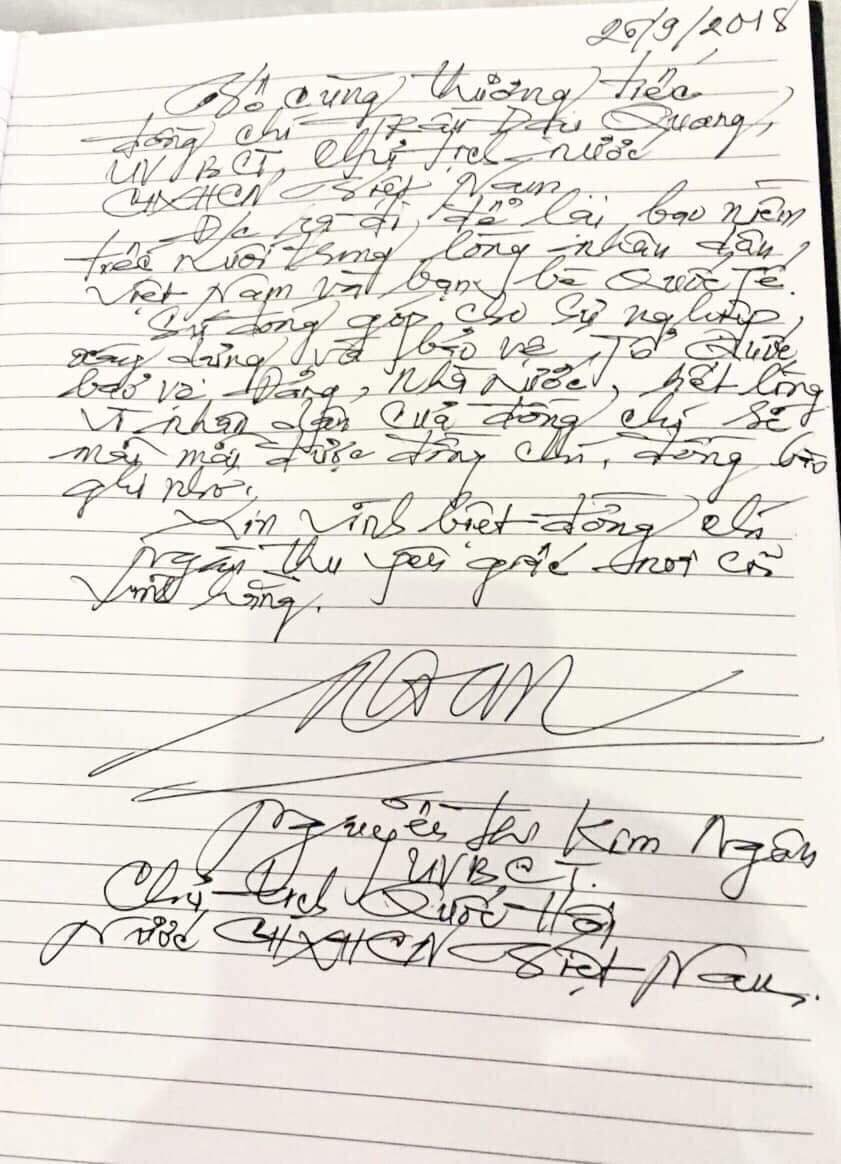 26/9/2018
Vô cùng thương tiếc
đồng chí Trần Đại Quang,
UV BCT, Chủ tịch nước
CHXHCN Việt Nam
Đ/c ra đi, để lại bao niềm
tiếc nuối trong lòng nhân dân
Việt Nam và bạn bè Quốc Tế.
Sự đóng góp cho sự nghiệp,
xây dựng và bảo vệ Tổ Quốc,
bảo vệ Đảng, Nhà Nước, hết lòng
vì nhân dân của đồng chí sẽ
mãi mãi được đồng chí, đồng bào
ghi nhớ.
Xin vĩnh biệt đồng chí
ngàn thu yên giấc nơi cõi
vĩnh hằng.
Ngân
Nguyễn Thị Kim Ngân
UVBCT.
Chủ tịch Quốc Hội
Nước CHXHCN Việt Nam.